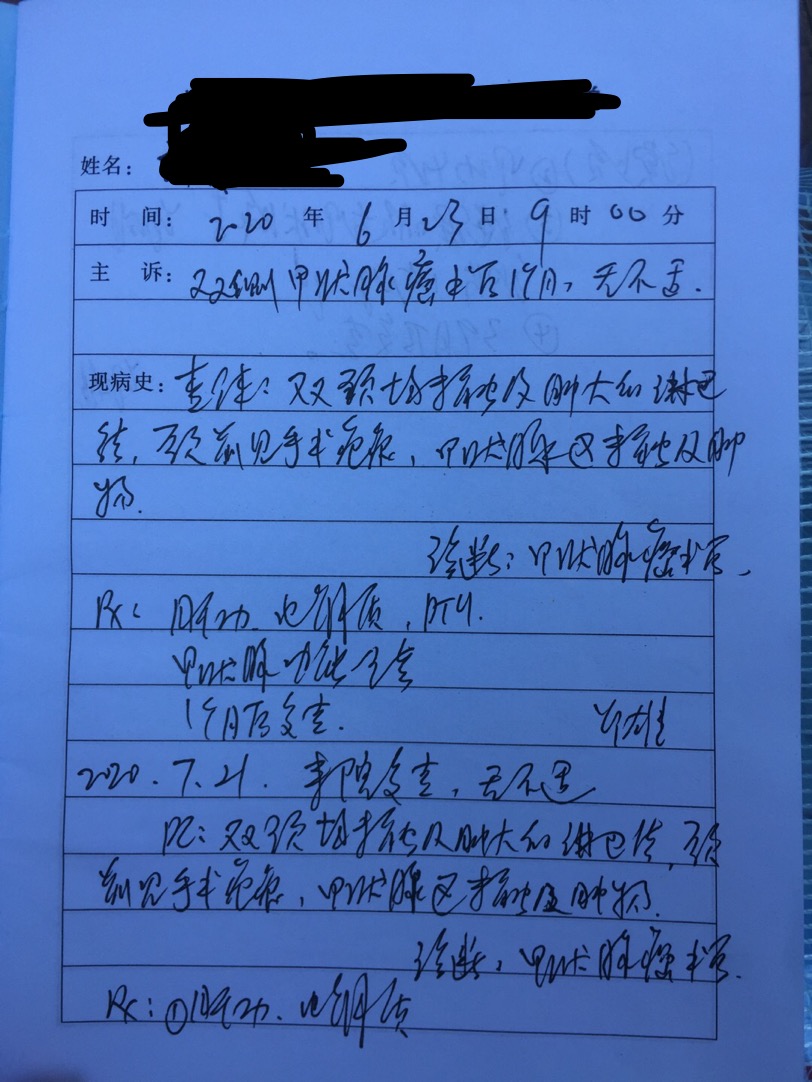 姓名:
时 间: 2020 年 6 月 23 日 9 时 00 分
主 诉: 双侧甲状腺癌术后1个月,无不适.
现病史: 查体:双颈均未触及肿大的淋巴
结,颈前见手术疤痕,甲状腺区未触及肿
物.
诊断:甲状腺癌术后,
Rx: 肝功、电解质,PTH.
甲状腺功能
1个月后复查.
2020.7.21. 来院复查,无不适
PE:双颈均未触及肿大的淋巴结,颈
前见手术疤痕,甲状腺区未触及肿物.
诊断:甲状腺癌术后.
Rx:①肝功、电解质